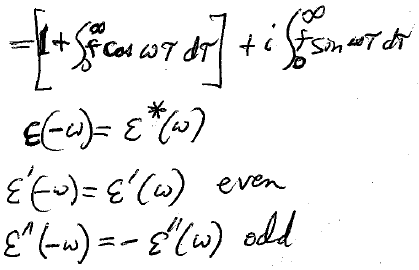 =[1+∫₀^∞ f cos ωτ dτ] + i ∫₀^∞ f sin ωτ dτ
ε(-ω)= ε*(ω)
ε'(-ω)= ε'(ω) even
ε"(-ω)= - ε"(ω) odd